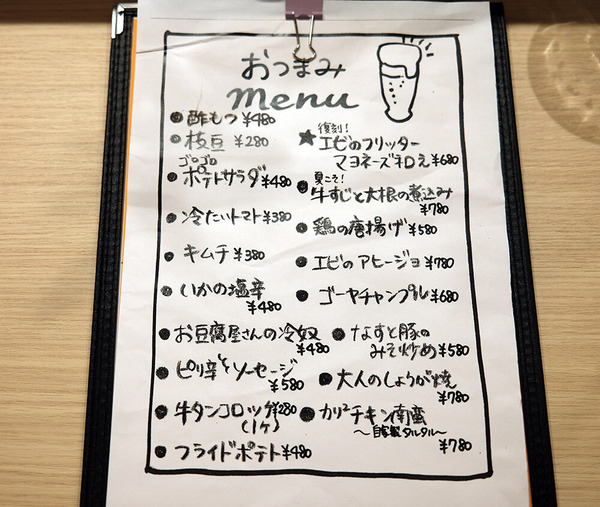 おつまみ
menu
● 酢もつ ¥480
● 枝豆 ¥280
ゴロゴロ
● ポテトサラダ ¥480
● 冷たいトマト ¥380
● キムチ ¥380
● いかの塩辛
¥480
● お豆腐屋さんの冷奴
¥480
● ピリ辛ソーセージ
¥580
● 牛タンコロッケ ¥280
(1ヶ)
● フライドポテト ¥480
復刻!
★ エビのフリッター
マヨネーズ和え ¥680
夏こそ!
● 牛すじと大根の煮込み
¥780
● 鶏の唐揚げ ¥580
● エビのアヒージョ ¥780
● ゴーヤチャンプル ¥680
● なすと豚の
みそ炒め ¥580
● 大人のしょうが焼
¥780
● カリカリチキン南蛮
～自家製タルタル～
¥780